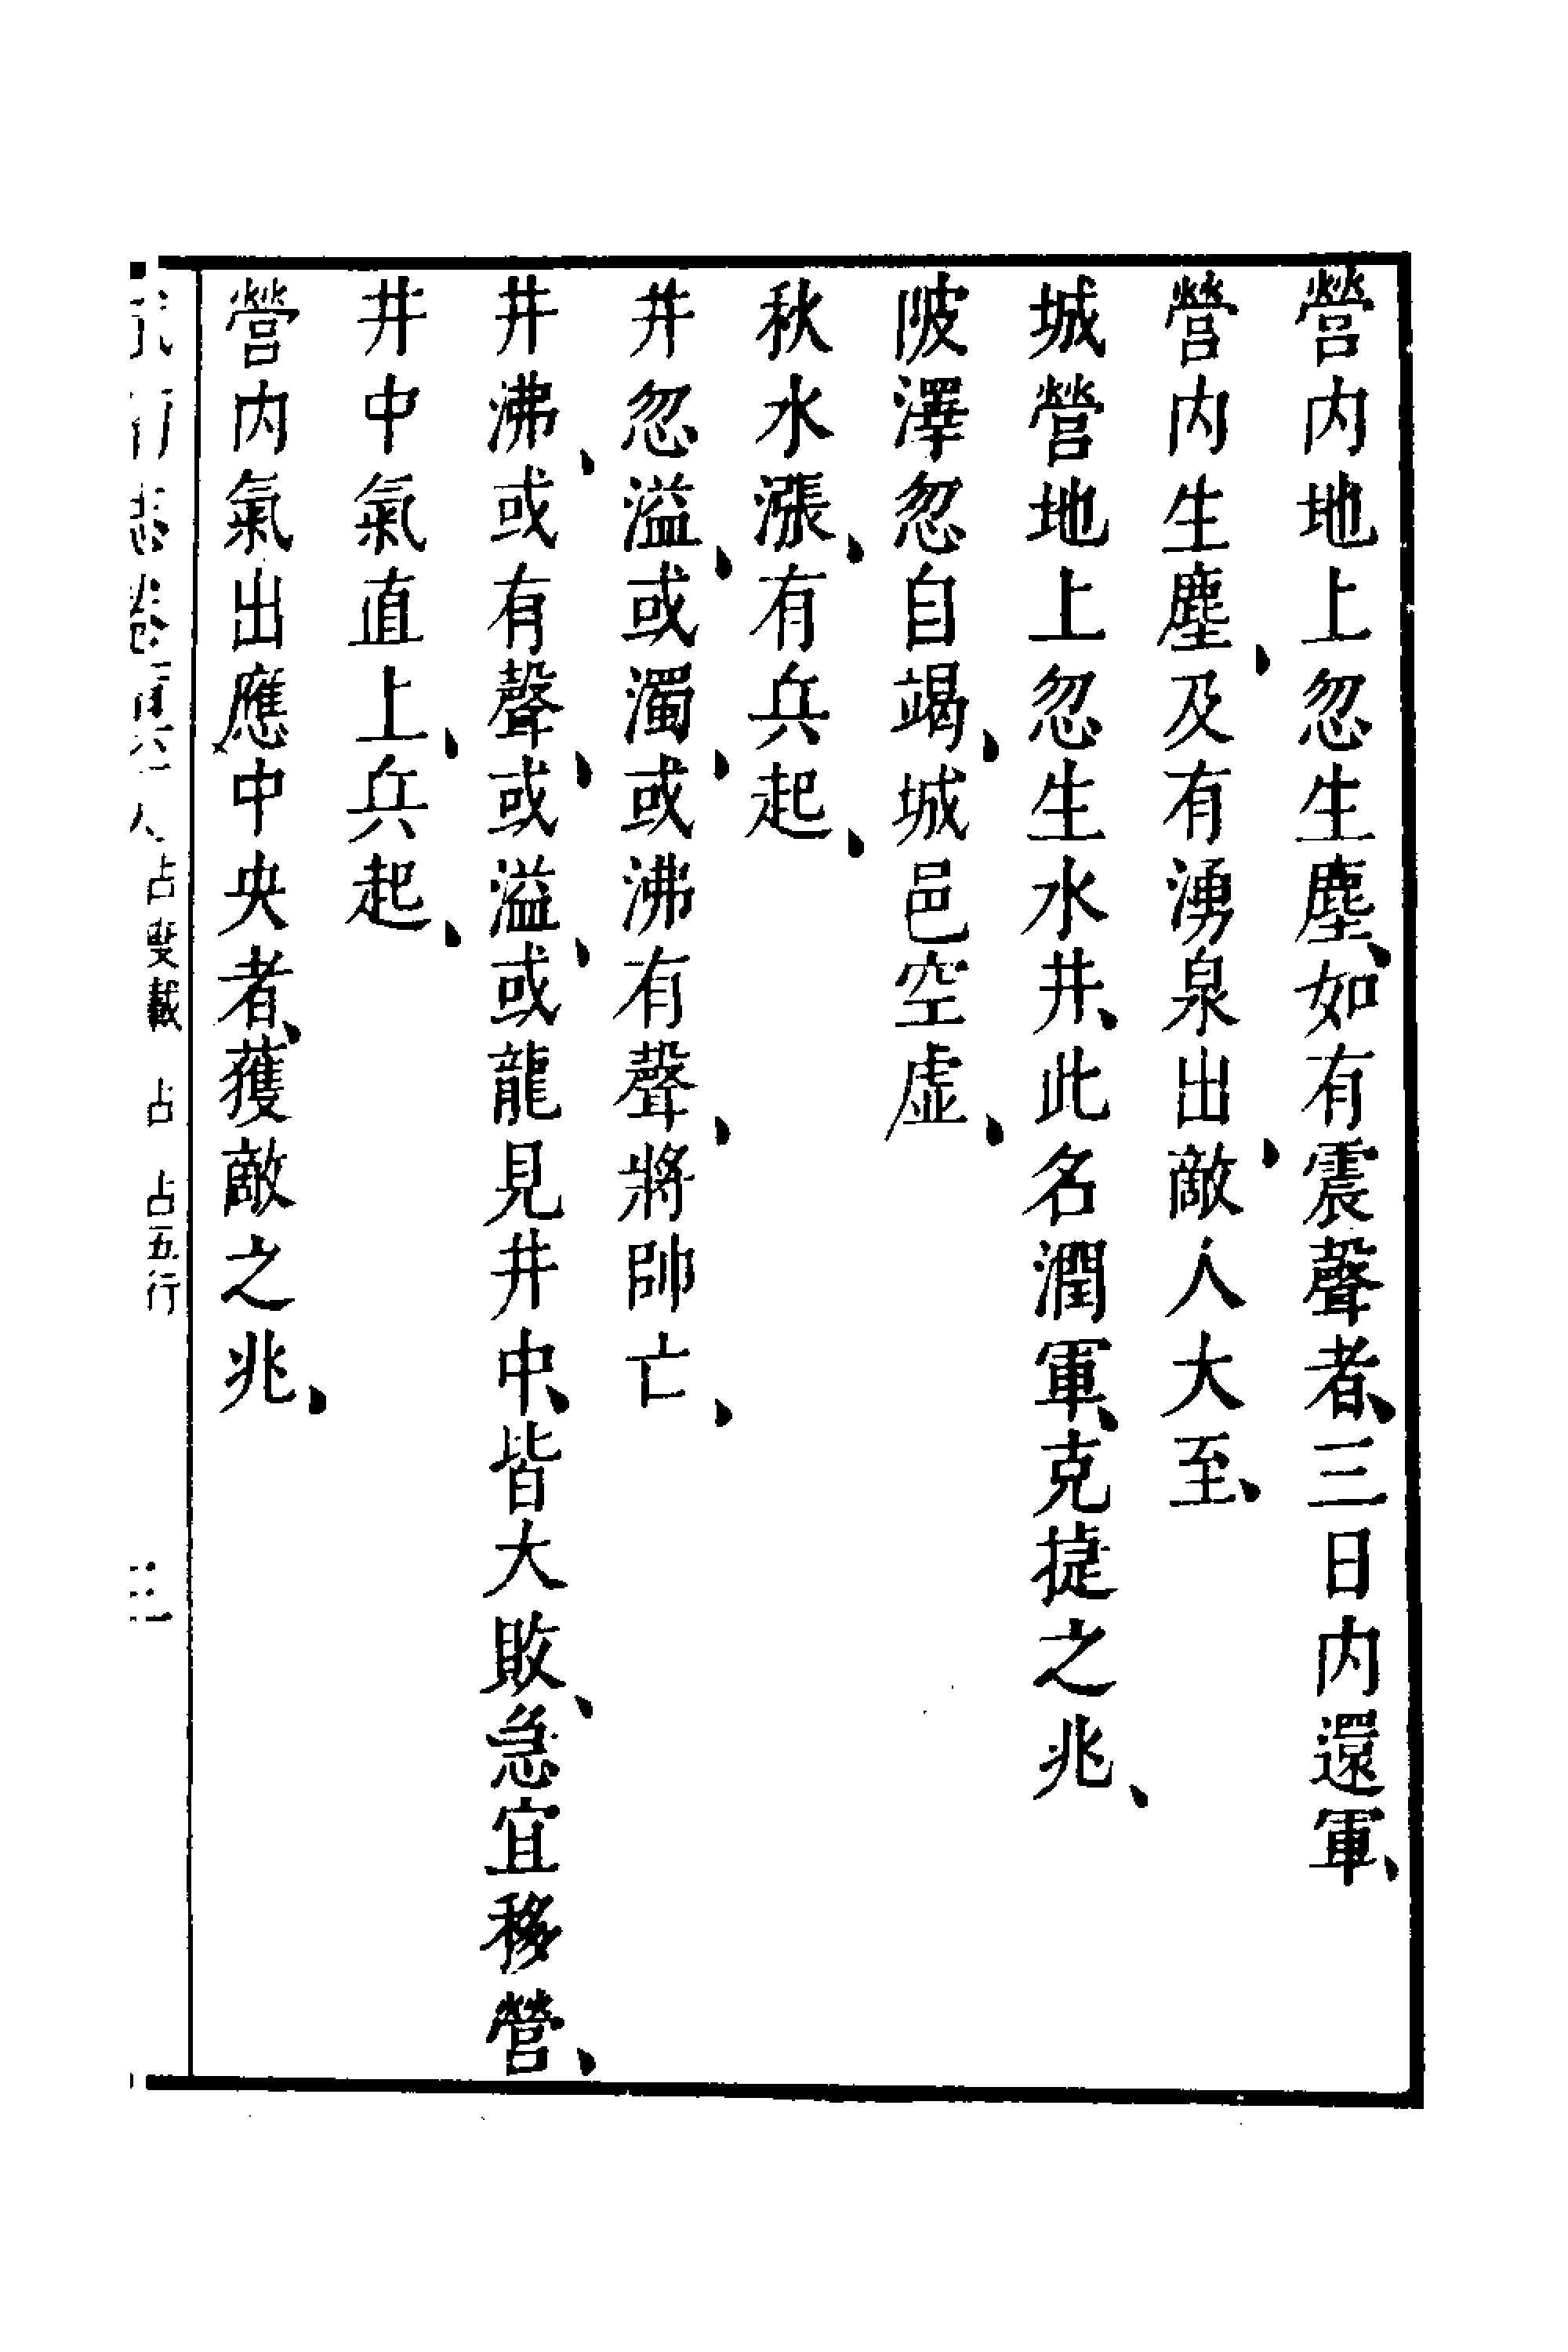 營内地上忽生塵、如有震聲者、三日内還軍、
營内生塵、及有湧泉出、敵人大至、
城營地上忽生水井、此名潤軍、克捷之兆、
陂澤忽自竭、城邑空虚、
秋水漲、有兵起、
井忽溢、或濁、或沸有聲、將帥亡、
井沸、或有聲、或溢、或龍見井中、皆大敗、急宜移營、
井中氣直上、兵起、
營内氣出應中央者、獲敵之兆、
占 載 占 占五行